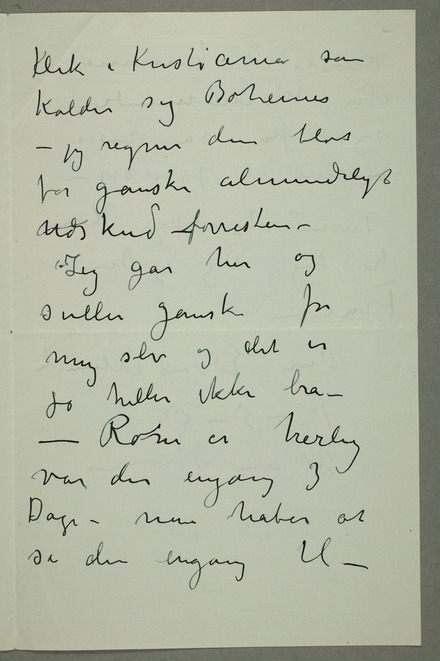 Klik i Kristiania som
kalder sig Bohemes
– jeg regner dem blot
for ganske almindeligt
Udskud forresten –
Jeg går her og
sviller ganske for
mig selv og det er
jo heller ikke bra –
– Rom er herlig
var der engang 3
Dage – men håber at
se den engang til –